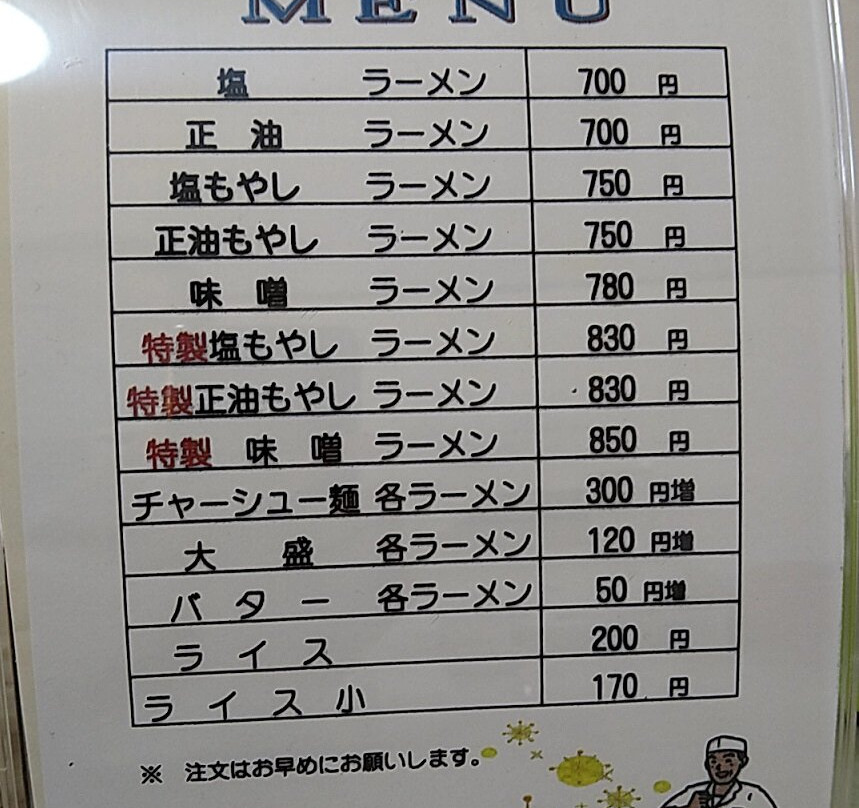 MENU
塩 ラーメン 700 円
正 油 ラーメン 700 円
塩もやし ラーメン 750 円
正油もやし ラーメン 750 円
味 噌 ラーメン 780 円
特製塩もやし ラーメン 830 円
特製正油もやし ラーメン 830 円
特製 味 噌 ラーメン 850 円
チャーシュー麺 各ラーメン 300 円増
大 盛 各ラーメン 120 円増
バ タ ー 各ラーメン 50 円増
ラ イ ス 200 円
ラ イ ス 小 170 円
※ 注文はお早めにお願いします。